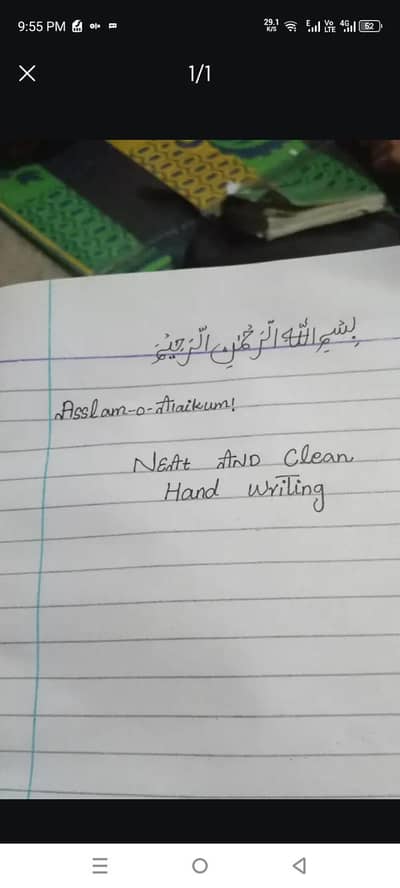 9:55 PM 29.1 K/S E Vo LTE 4G 52
1/1
بِسْمِ اللّٰهِ الرَّحْمٰنِ الرَّحِيْمِ
Asslam-o-Alaikum!
NEAt AND Clean
Hand Writing